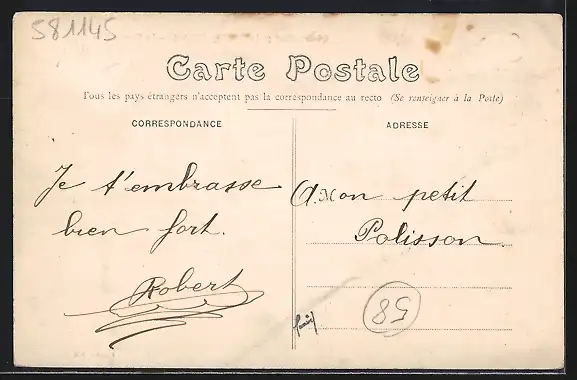 581145
Carte Postale
Tous les pays étrangers n'acceptent pas la correspondance au recto (Se renseigner à la Poste)
CORRESPONDANCE
Je t'embrasse
bien fort.
Robert
ADRESSE
A Mon petit
Polisson.
58